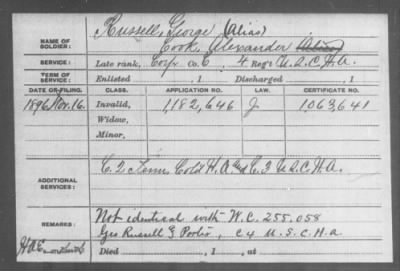 Russell, George (Alias)
NAME OF SOLDIER: Cook, Alexander (Alias)
SERVICE: Late rank, Corp Co. C, 4 Reg't U.S.C.H.A.
TERM OF SERVICE: Enlisted , 1 Discharged , 1
DATE OF FILING. CLASS. APPLICATION NO. LAW. CERTIFICATE NO.
1896 Nov. 16. Invalid, 1,182,646 J. 1,063,641
Widow,
Minor,
ADDITIONAL SERVICES: C. 2 Tenn Col'd H.A. and C. 3 U.S.C.H.A.
REMARKS: Not identical with W.C. 255.058
Geo Russell C 4 U.S.C.H.a
Died , 1 , at